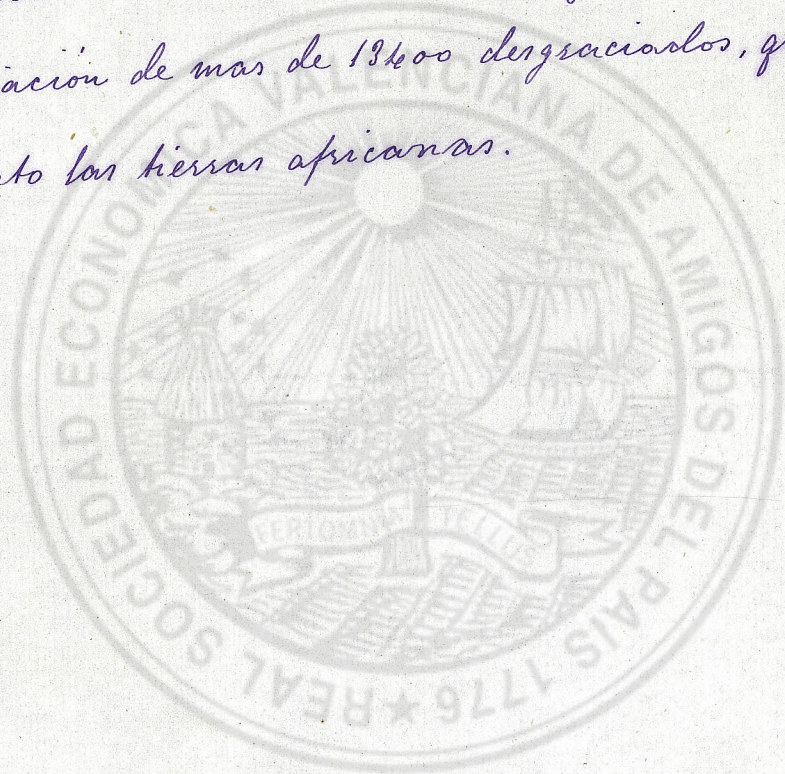 ación de mas de 13400 desgraciados, q
to las tierras africanas.
REAL SOCIEDAD ECONOMICA VALENCIANA DE AMIGOS DEL PAIS 1776 ★
FERT OMNIA TELLUS